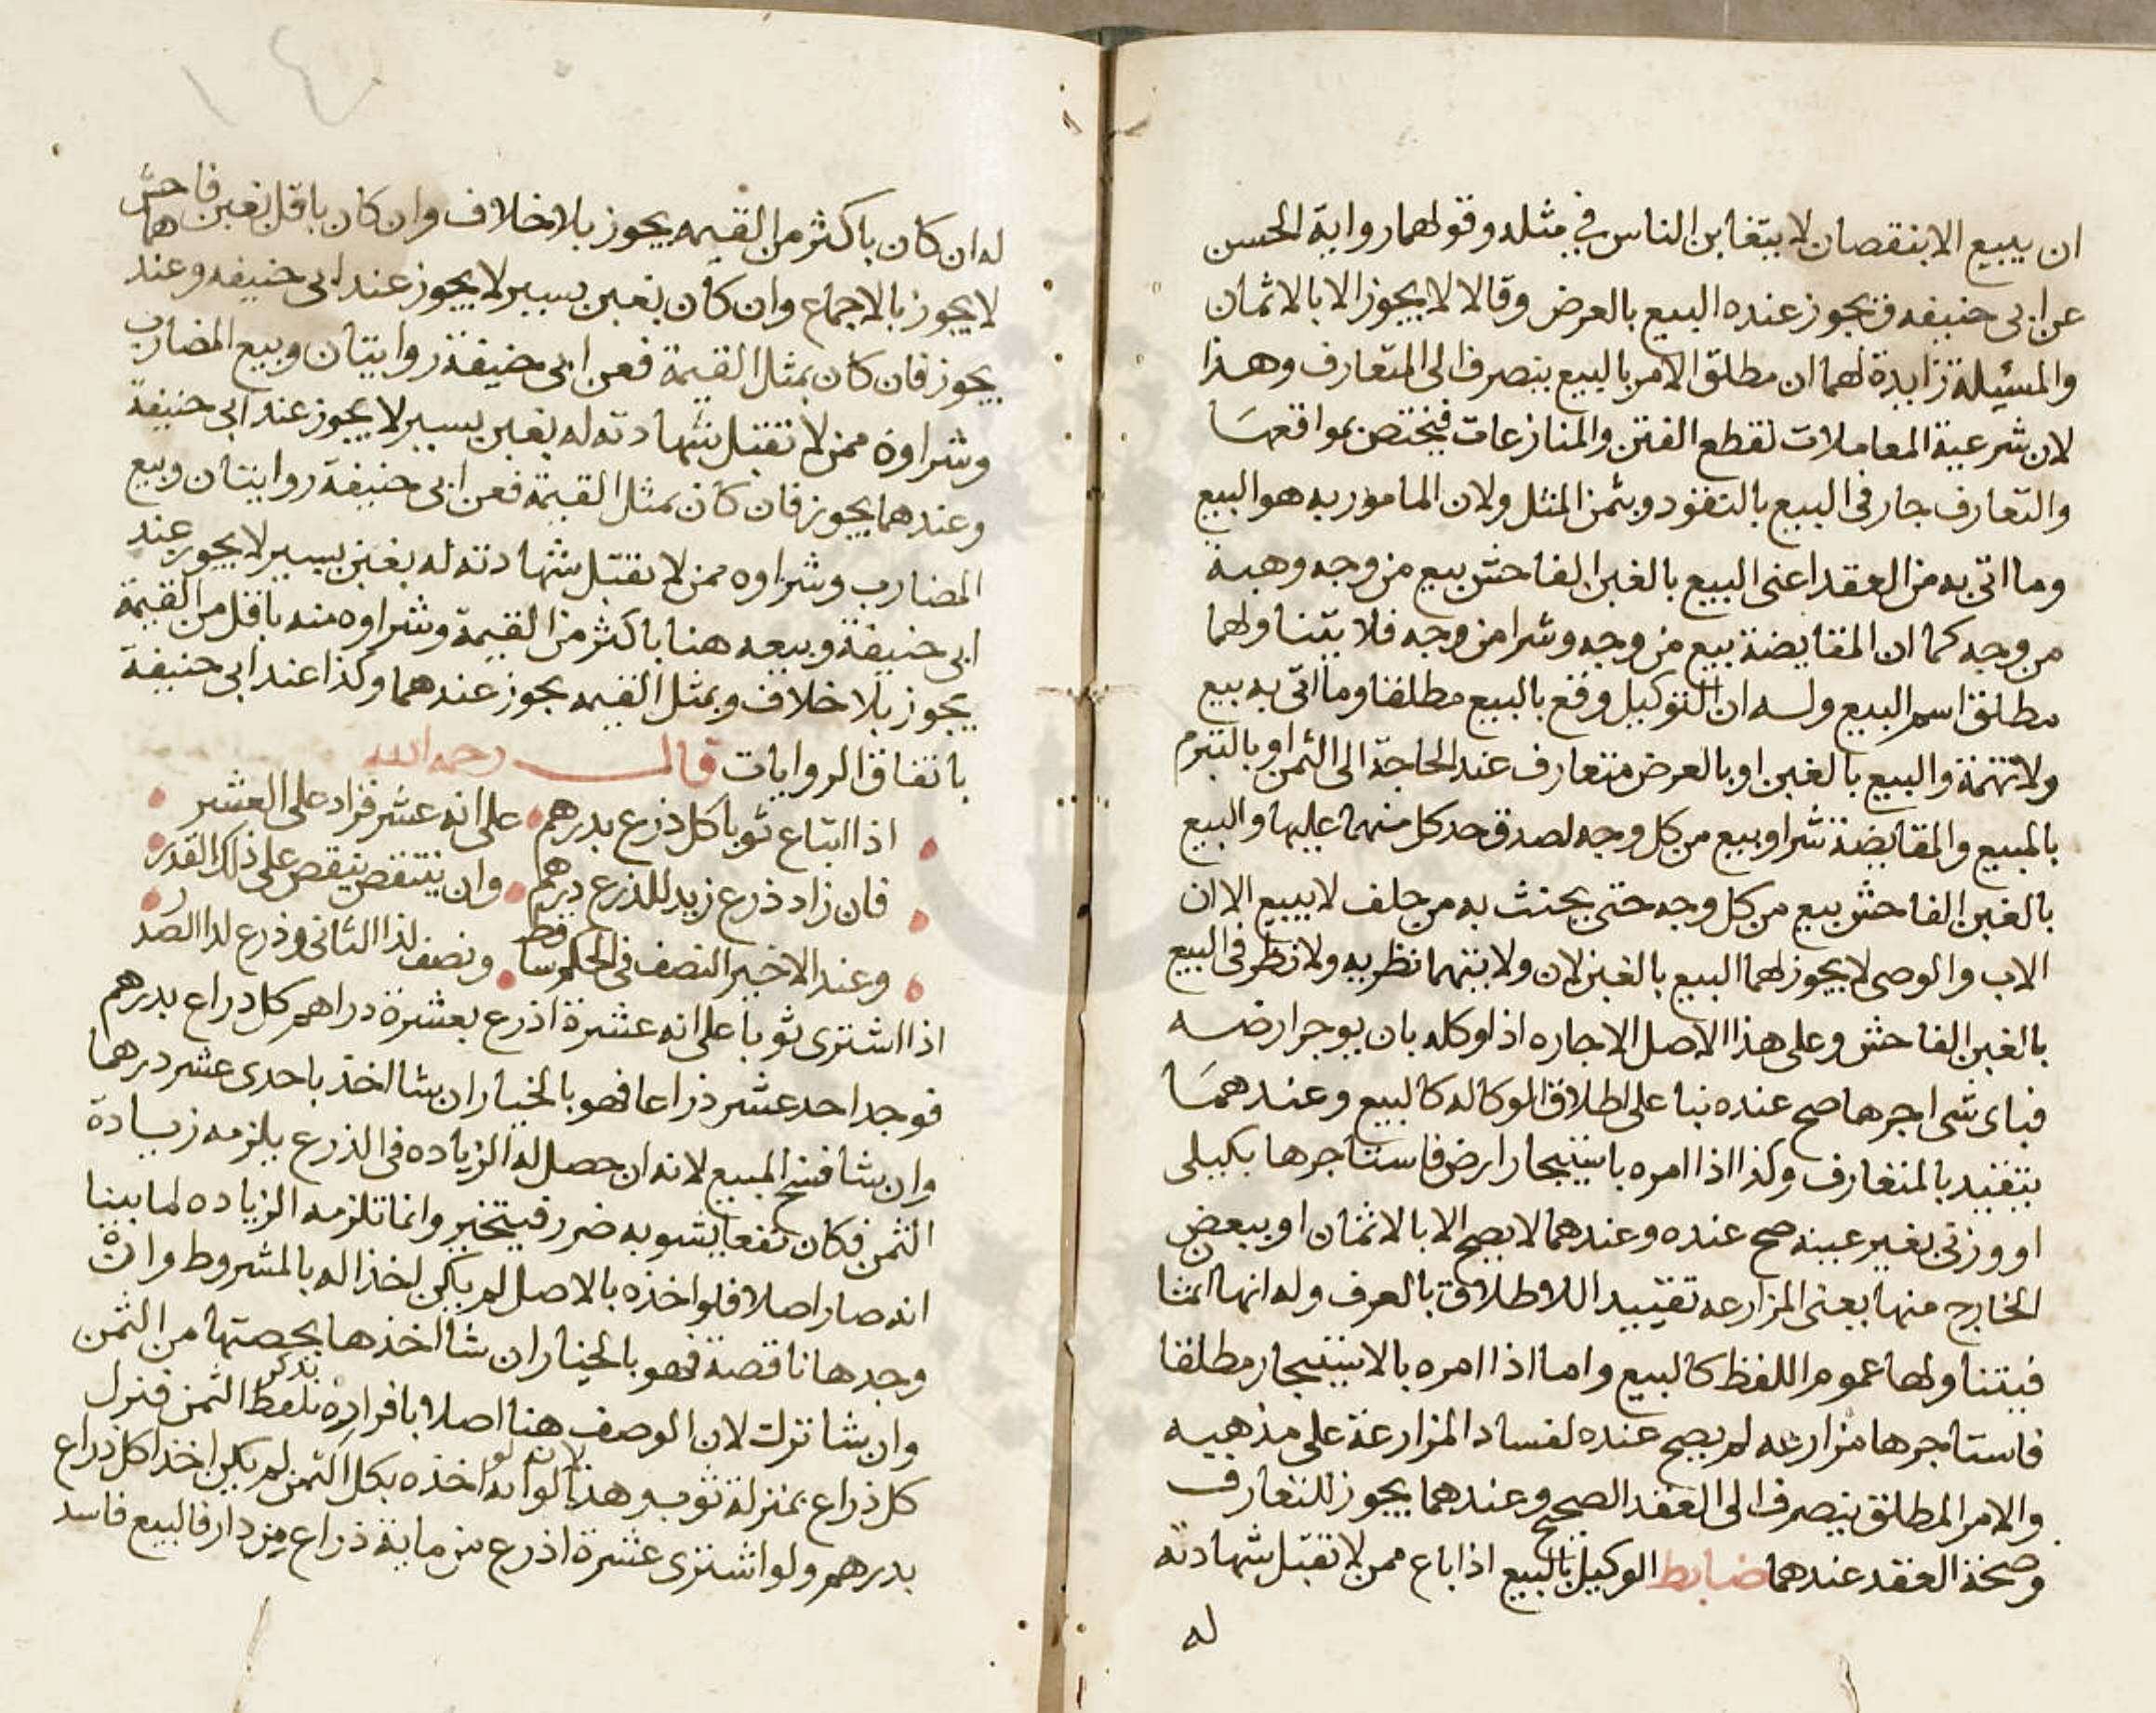 ان يبيع الا بنقصان لا يتغابن الناس في مثله وقولهما رواية الحسن
عن ابى حنيفه فيجوز عنده البيع بالعرض وقالا لا يجوز الا بالاثمان
والمسئيلة زايدة لهما ان مطلق الامر بالبيع ينصرف الى المتعارف وهذا
لان شرعية المعاملات لقطع الفتن والمنازعات فيختص بمواقعها
والتعارف جار فى البيع بالنقود وبثمن المثل ولان المامور به هو البيع
وما اتى به من العقد اعنى البيع بالغبن الفاحش بيع من وجه وهبة
من وجه كما ان المقايضة بيع من وجه وشرا من وجه فلا يتناولهما
مطلق اسم البيع وله ان التوكيل وقع بالبيع مطلقا وما اتى به بيع
ولا تهمة والبيع بالغبن او بالعرض متعارف عند الحاجة الى الثمن او بالتبرم
بالمبيع والمقايضة شرا وبيع من كل وجه لصدق حد كل منهما عليها والبيع
بالغبن الفاحش بيع من كل وجه حتى يحنث به من حلف لا يبيع الا ان
الاب والوصى لا يجوز لهما البيع بالغبن لان ولايتهما نظريه ولا نظر فى البيع
بالغبن الفاحش وعلى هذا الاصل الاجاره اذا وكله بان يوجر ارضه
فباى شى اجرها صح عنده بنا على اطلاق الوكاله كالبيع وعندهما
يتقيد بالمتعارف وكذا اذا امره باستيجار ارض فاستاجرها بكيلى
او وزنى بغير عينه صح عنده وعندهما لا يصح الا بالاثمان او ببعض
الخارج منها يعنى المزارعه تقييدا للاطلاق بالعرف وله انها اثمان
فيتناولها عموم اللفظ كالبيع واما اذا امره بالاستيجار مطلقا
فاستاجرها مزارعه لم يصح عنده لفساد المزارعة على مذهبه
والامر المطلق ينصرف الى العقد الصحيح وعندهما يجوز للتعارف
وصحة العقد عندهما ضابط الوكيل بالبيع اذا باع ممن لا تقبل شهادته
له
له ان كان باكثر من القيمه يجوز بلا خلاف وان كان باقل بغبن فاحش
لا يجوز بالاجماع وان كان بغبن يسير لا يجوز عند ابى حنيفه وعندهما
يجوز فان كان بمثل القيمة فعن ابى حنيفة روايتان وبيع المضارب
وشراوه ممن لا تقبل شهادته له بغبن يسير لا يجوز عند ابى حنيفة
وعندهما يجوز فان كان بمثل القيمة فعن ابى حنيفة روايتان وبيع
المضارب وشراوه ممن لا تقبل شهادته له بغبن يسير لا يجوز عند
ابى حنيفة وبيعه هنا باكثر من القيمة وشراوه منه باقل من القيمة
يجوز بلا خلاف وبمثل القيمه يجوز عندهما وكذا عند ابى حنيفة
باتفاق الروايات قال رحمه الله
اذا ابتاع ثوبا كل ذرع بدرهم على انه عشر فزاد على العشر
فان زاد ذرع زيد للذرع درهم وان ينتقص ينقص على ذلك القدر
وعند الاخير النصف فى الحكم ساقط ونصف لذا الثانى وذرع لدا الصدر
اذا اشترى ثوبا على انه عشرة اذرع بعشرة دراهم كل دراع بدرهم
فوجد احد عشر ذراعا فهو بالخيار ان شا اخذ باحدى عشر درهما
وان شا فسخ المبيع لانه ان حصل له الزياده فى الذرع يلزمه زيادة
الثمن فكان نفعا يشوبه ضرر فيتخير وانما تلزمه الزياده لما بينا
انه صار اصلا فلو اخذه بالاصل لم يكن اخذا له بالمشروط وان
وجدها ناقصة فهو بالخيار ان شا اخذها بحصتها من الثمن
وان شا ترك لان الوصف هنا اصلا بافراده بلفظ الثمن فنزل
كل ذراع بمنزلة ثوب وهذا لانه لو اخذه بكل الثمن لم يكن اخذا كل ذراع
بدرهم ولو اشترى عشرة اذرع من ماية ذراع من دار فالبيع فاسد